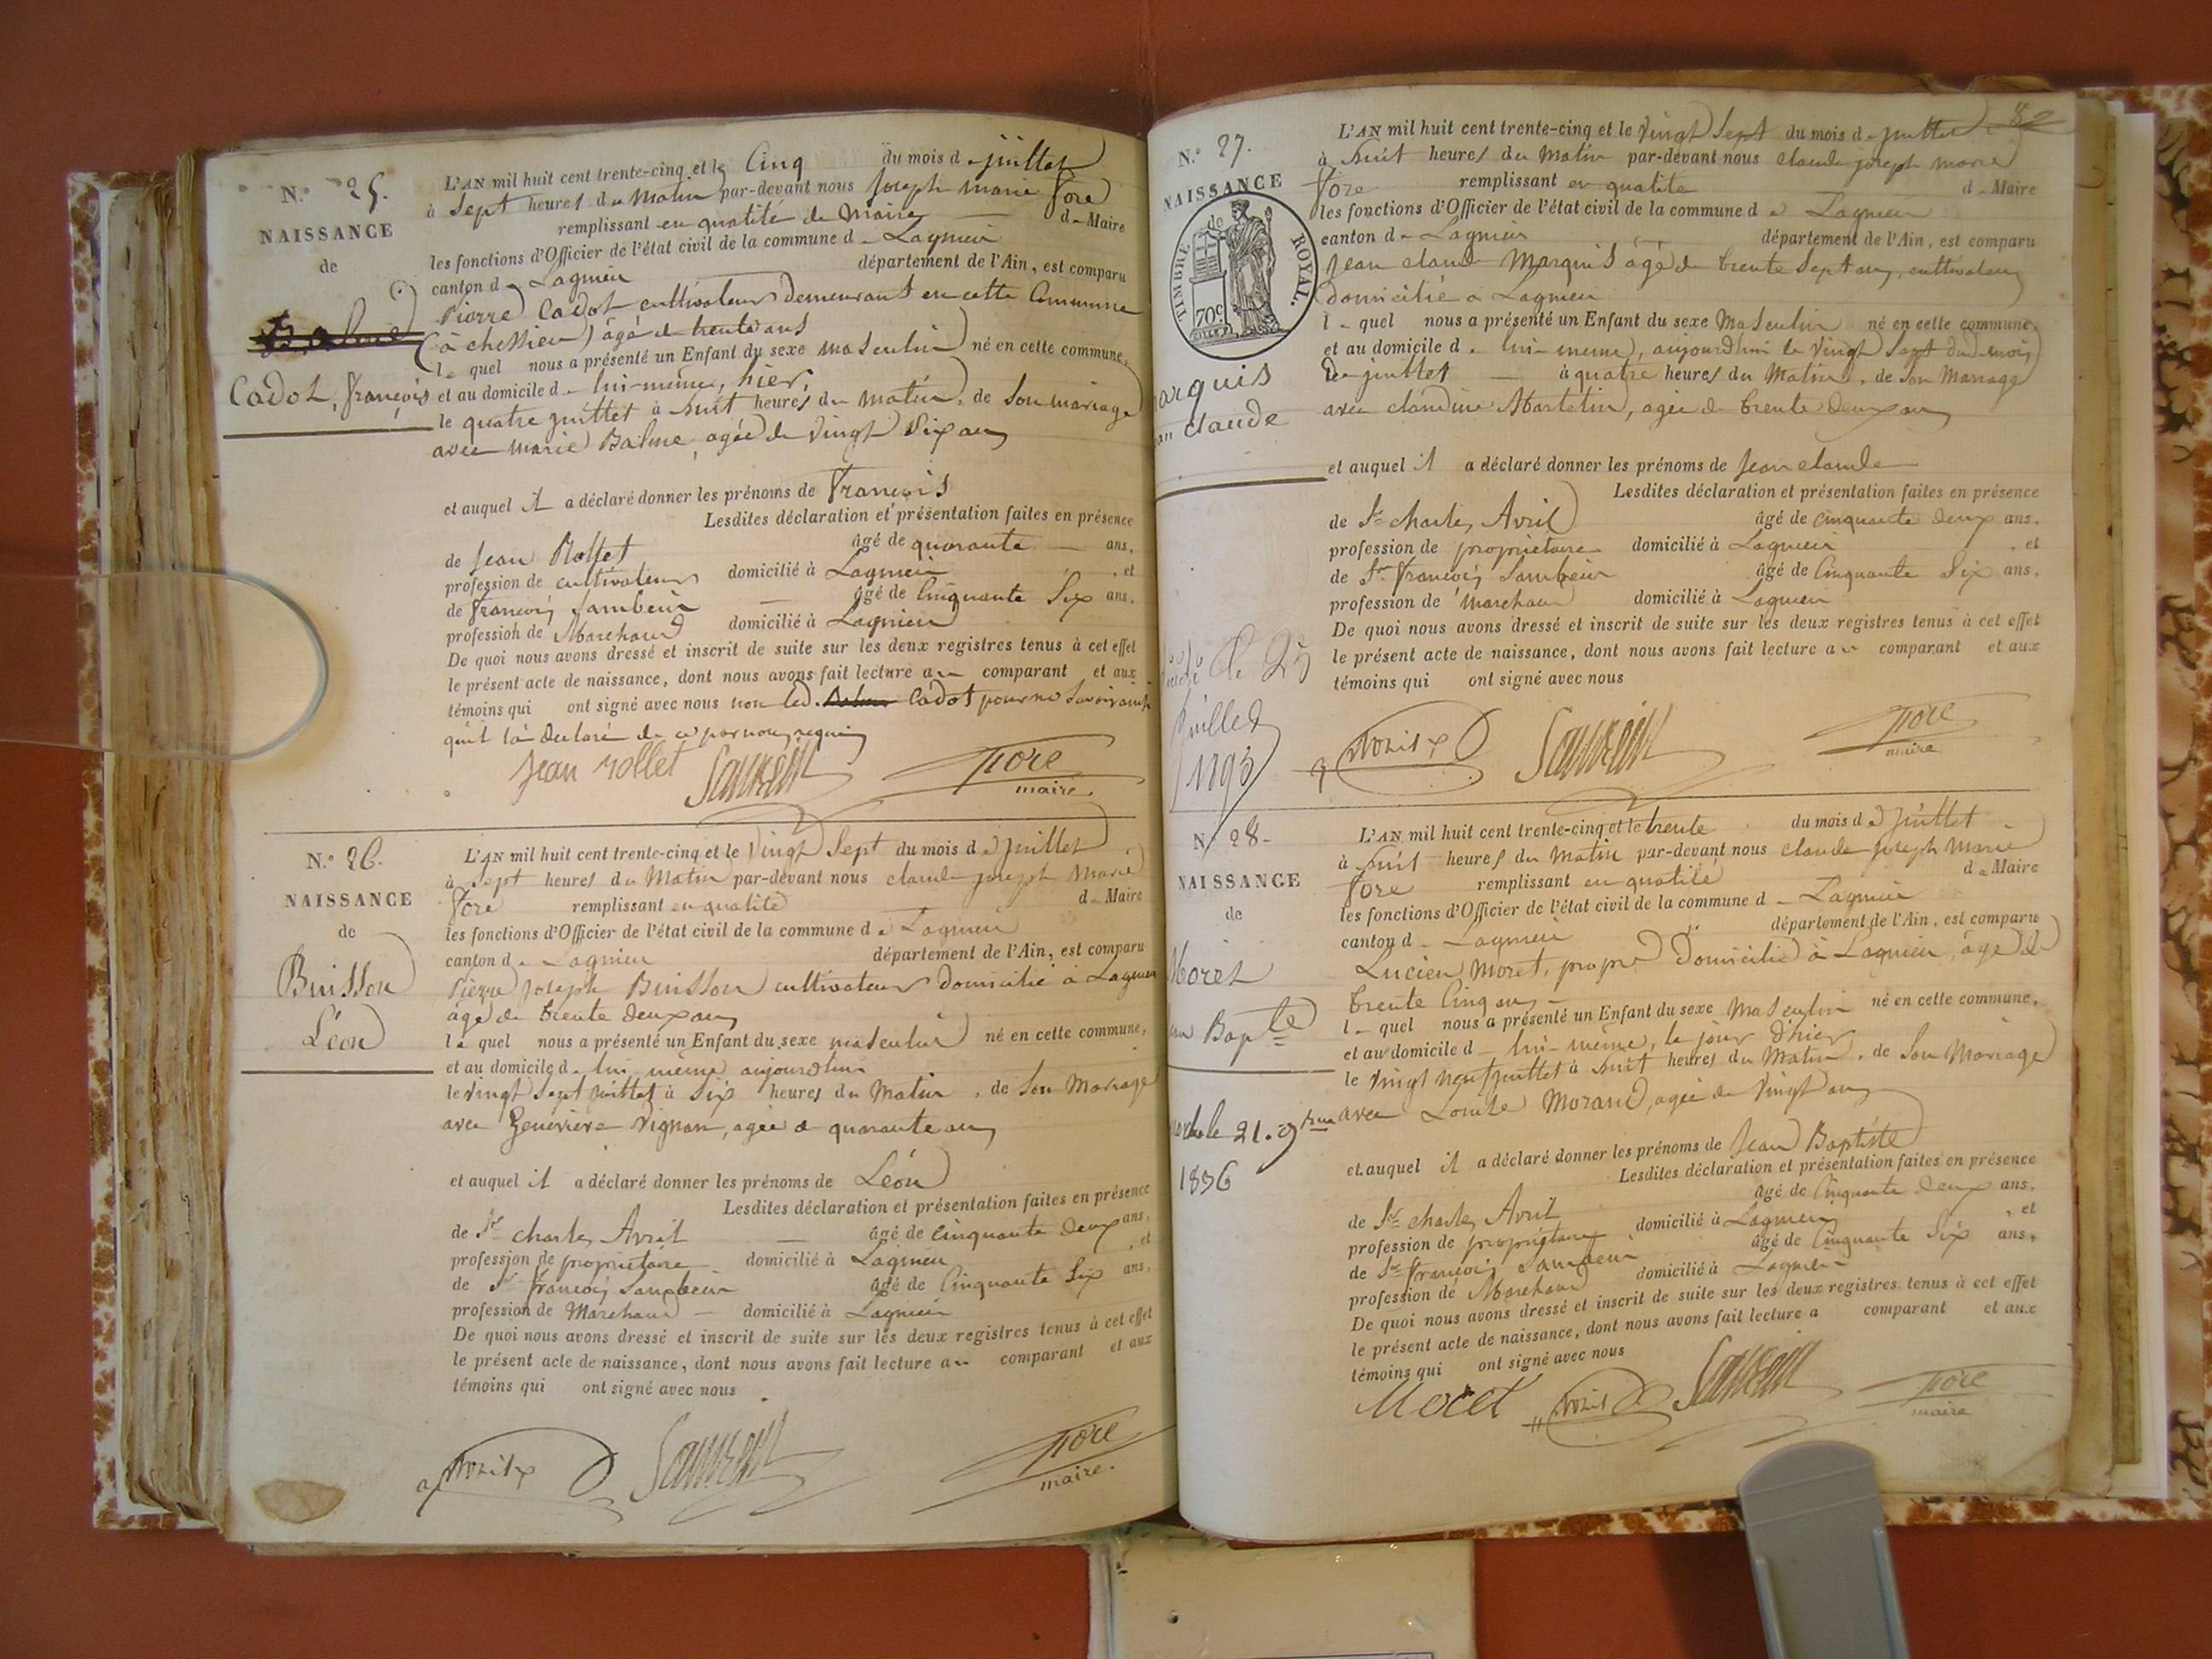 N.º 25.
NAISSANCE
de
Cadot, françois
L'AN mil huit cent trente-cinq et le Cinq du mois de juillet
à Sept heures du Matin par-devant nous Joseph marie Fore
remplissant en qualité de Maire de Maire
les fonctions d'Officier de l'état civil de la commune de Lagnieu
canton de Lagnieu département de l'Ain, est comparu
Pierre Cadot cultivateur Demeurant en cette Commune
(à chessieu) âgé de trente ans
le quel nous a présenté un Enfant du sexe masculin né en cette commune,
et au domicile de lui-même, hier,
le quatre juillet à huit heures du matin, de Son mariage
avec marie Balme, agée de vingt Six ans
et auquel il a déclaré donner les prénoms de François
Lesdites déclaration et présentation faites en présence
de Jean Rollet âgé de quarante ans,
profession de cultivateur domicilié à Lagnieu , et
de François Sambein âgé de Cinquante Six ans,
profession de Marchand domicilié à Lagnieu
De quoi nous avons dressé et inscrit de suite sur les deux registres tenus à cet effet
le présent acte de naissance, dont nous avons fait lecture au comparant et aux
témoins qui ont signé avec nous non led. Cadot pour ne savoir ainsi
qu'il l'a déclaré de ce par nous requis
Jean rollet
Fore
maire.
N.º 26.
NAISSANCE
de
Buisson
Léon
L'AN mil huit cent trente-cinq et le Vingt Sept du mois de juillet
à Sept heures du Matin par-devant nous claude joseph Marie
Fore remplissant en qualité de Maire
les fonctions d'Officier de l'état civil de la commune de Lagnieu
canton de Lagnieu département de l'Ain, est comparu
Pierre Joseph Buisson cultivateur domicilié à Lagnieu
âgé de trente deux ans
le quel nous a présenté un Enfant du sexe masculin né en cette commune,
et au domicile de lui même aujourdhui
le vingt Sept juillet à Six heures du Matin, de Son Mariage
avec Genevieve Vignan, agée de quarante ans
et auquel il a déclaré donner les prénoms de Léon
Lesdites déclaration et présentation faites en présence
de Sr charles Avril âgé de cinquante deux ans,
profession de propriétaire domicilié à Lagnieu , et
de Sr François Sambein âgé de Cinquante Six ans,
profession de Marchand domicilié à Lagnieu
De quoi nous avons dressé et inscrit de suite sur les deux registres tenus à cet effet
le présent acte de naissance, dont nous avons fait lecture au comparant et aux
témoins qui ont signé avec nous
Avril
Fore
maire.
82
N.º 27.
NAISSANCE
de
TIMBRE ROYAL.
70c
arquis
an claude
le 25
juillet
1893
L'AN mil huit cent trente-cinq et le Vingt Sept du mois de juillet
à huit heures du Matin par-devant nous claude joseph marie
Fore remplissant en qualité de Maire
les fonctions d'Officier de l'état civil de la commune de Lagnieu
canton de Lagnieu département de l'Ain, est comparu
Jean claude Marquis âgé de trente Sept ans, cultivateur
domicilié à Lagnieu
le quel nous a présenté un Enfant du sexe Masculin né en cette commune,
et au domicile de lui-même, aujourdhui le vingt Sept du mois
de juillet à quatre heures du Matin, de Son Mariage
avec claudine Martelin, agée de trente deux ans
et auquel il a déclaré donner les prénoms de Jean claude
Lesdites déclaration et présentation faites en présence
de Sr charles Avril âgé de cinquante deux ans,
profession de propriétaire domicilié à Lagnieu , et
de Sr François Sambein âgé de Cinquante Six ans,
profession de marchand domicilié à Lagnieu
De quoi nous avons dressé et inscrit de suite sur les deux registres tenus à cet effet
le présent acte de naissance, dont nous avons fait lecture au comparant et aux
témoins qui ont signé avec nous
Avril
Fore
maire
N.º 28.
NAISSANCE
de
Moret
an Bapte
le 21. 9bre
1836
L'AN mil huit cent trente-cinq et le trente du mois de juillet
à huit heures du Matin par-devant nous claude joseph Marie
Fore remplissant en qualité de Maire
les fonctions d'Officier de l'état civil de la commune de Lagnieu
canton de Lagnieu département de l'Ain, est comparu
Lucien Moret, propre Domicilié à Lagnieu, âgé de
trente Cinq ans
le quel nous a présenté un Enfant du sexe Masculin né en cette commune,
et au domicile de lui-même, le jour d'hier
le Vingt neuf juillet à huit heures du Matin, de Son Mariage
avec Louise Morand, agée de Vingt ans
et auquel il a déclaré donner les prénoms de Jean Baptiste
Lesdites déclaration et présentation faites en présence
de Sr charles Avril âgé de Cinquante deux ans,
profession de propriétaire domicilié à Lagnieu , et
de Sr François Sambein âgé de Cinquante Six ans,
profession de Marchand domicilié à Lagnieu
De quoi nous avons dressé et inscrit de suite sur les deux registres tenus à cet effet
le présent acte de naissance, dont nous avons fait lecture a comparant et aux
témoins qui ont signé avec nous
Moret Avril
Fore
maire